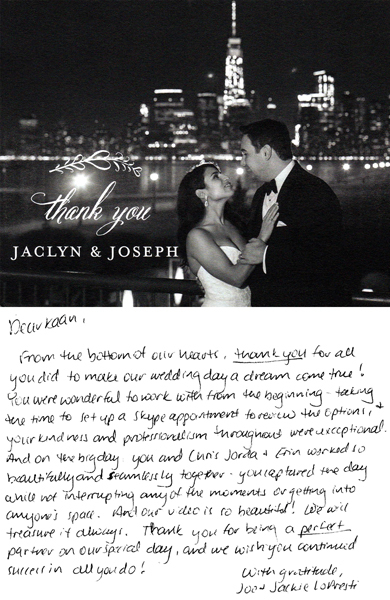 thank you
JACLYN & JOSEPH
Dear Kaan,
From the bottom of our hearts, thank you for all
you did to make our wedding day a dream come true!
You were wonderful to work with from the beginning - taking
the time to set up a Skype appointment to review the options, +
your kindness and professionalism throughout were exceptional.
And on the big day you and Chris Jorda + Erin worked so
beautifully and seamlessly together - you captured the day
while not interrupting any of the moments or getting into
anyone's space. And our video is so beautiful! We will
treasure it always. Thank you for being a perfect
partner on our special day, and we wish you continued
success in all you do!
With gratitude,
Joe + Jackie LoPresti